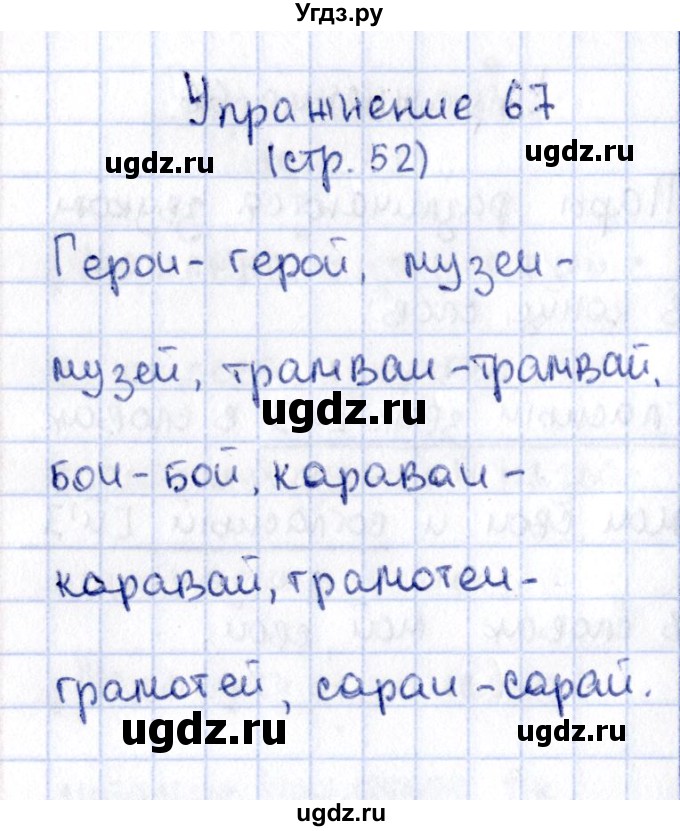 Угдз.ру
Упражнение 67
ugdz.ru (стр. 52) ugdz.ru
Герои- герой, музеи-
музей, трамваи-трамвай,
ugdz.ru
бои- бой, караваи-
каравай, грамотеи-
грамотей, сараи-сарай.
ugdz.ru ugdz.ru
ugdz.ru